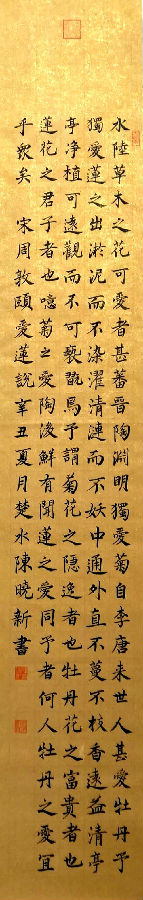 水陸草木之花可愛者甚蕃晉陶淵明獨愛菊自李唐来世人甚愛牡丹予
獨愛蓮之出淤泥而不染濯清漣而不妖中通外直不蔓不枝香遠益清亭
亭净植可遠觀而不可褻翫焉予謂菊花之隱逸者也牡丹花之富貴者也
蓮花之君子者也噫菊之愛陶後鮮有聞蓮之愛同予者何人牡丹之愛宜
乎衆矣 宋周敦頤愛蓮說辛丑夏月楚水陳曉新書